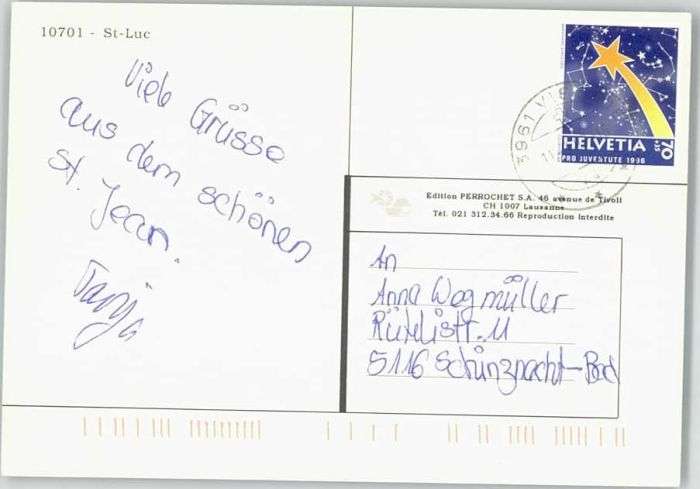 10701 - St-Luc
Viele Grüsse
aus dem schönen
St. Jean.
Tanja
HELVETIA
70
PRO JUVENTUTE 1996
3961
Edition PERROCHET S.A. 46 avenue de Tivoli
CH 1007 Lausanne
Tél. 021 312.34.66 Reproduction interdite
An
Anna Wegmüller
Rütelistr. 11
5116 Schinznacht-Bad